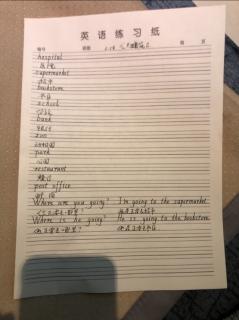 英语练习纸
编号 班级 页
hospital
医院
supermarket
超市
bookstore
书店
school
学校
bank
银行
zoo
动物园
park
公园
restaurant
餐厅
post office
邮局
Where are you going? I'm going to the supermarket.
Where is he going? He is going to the bookstore.